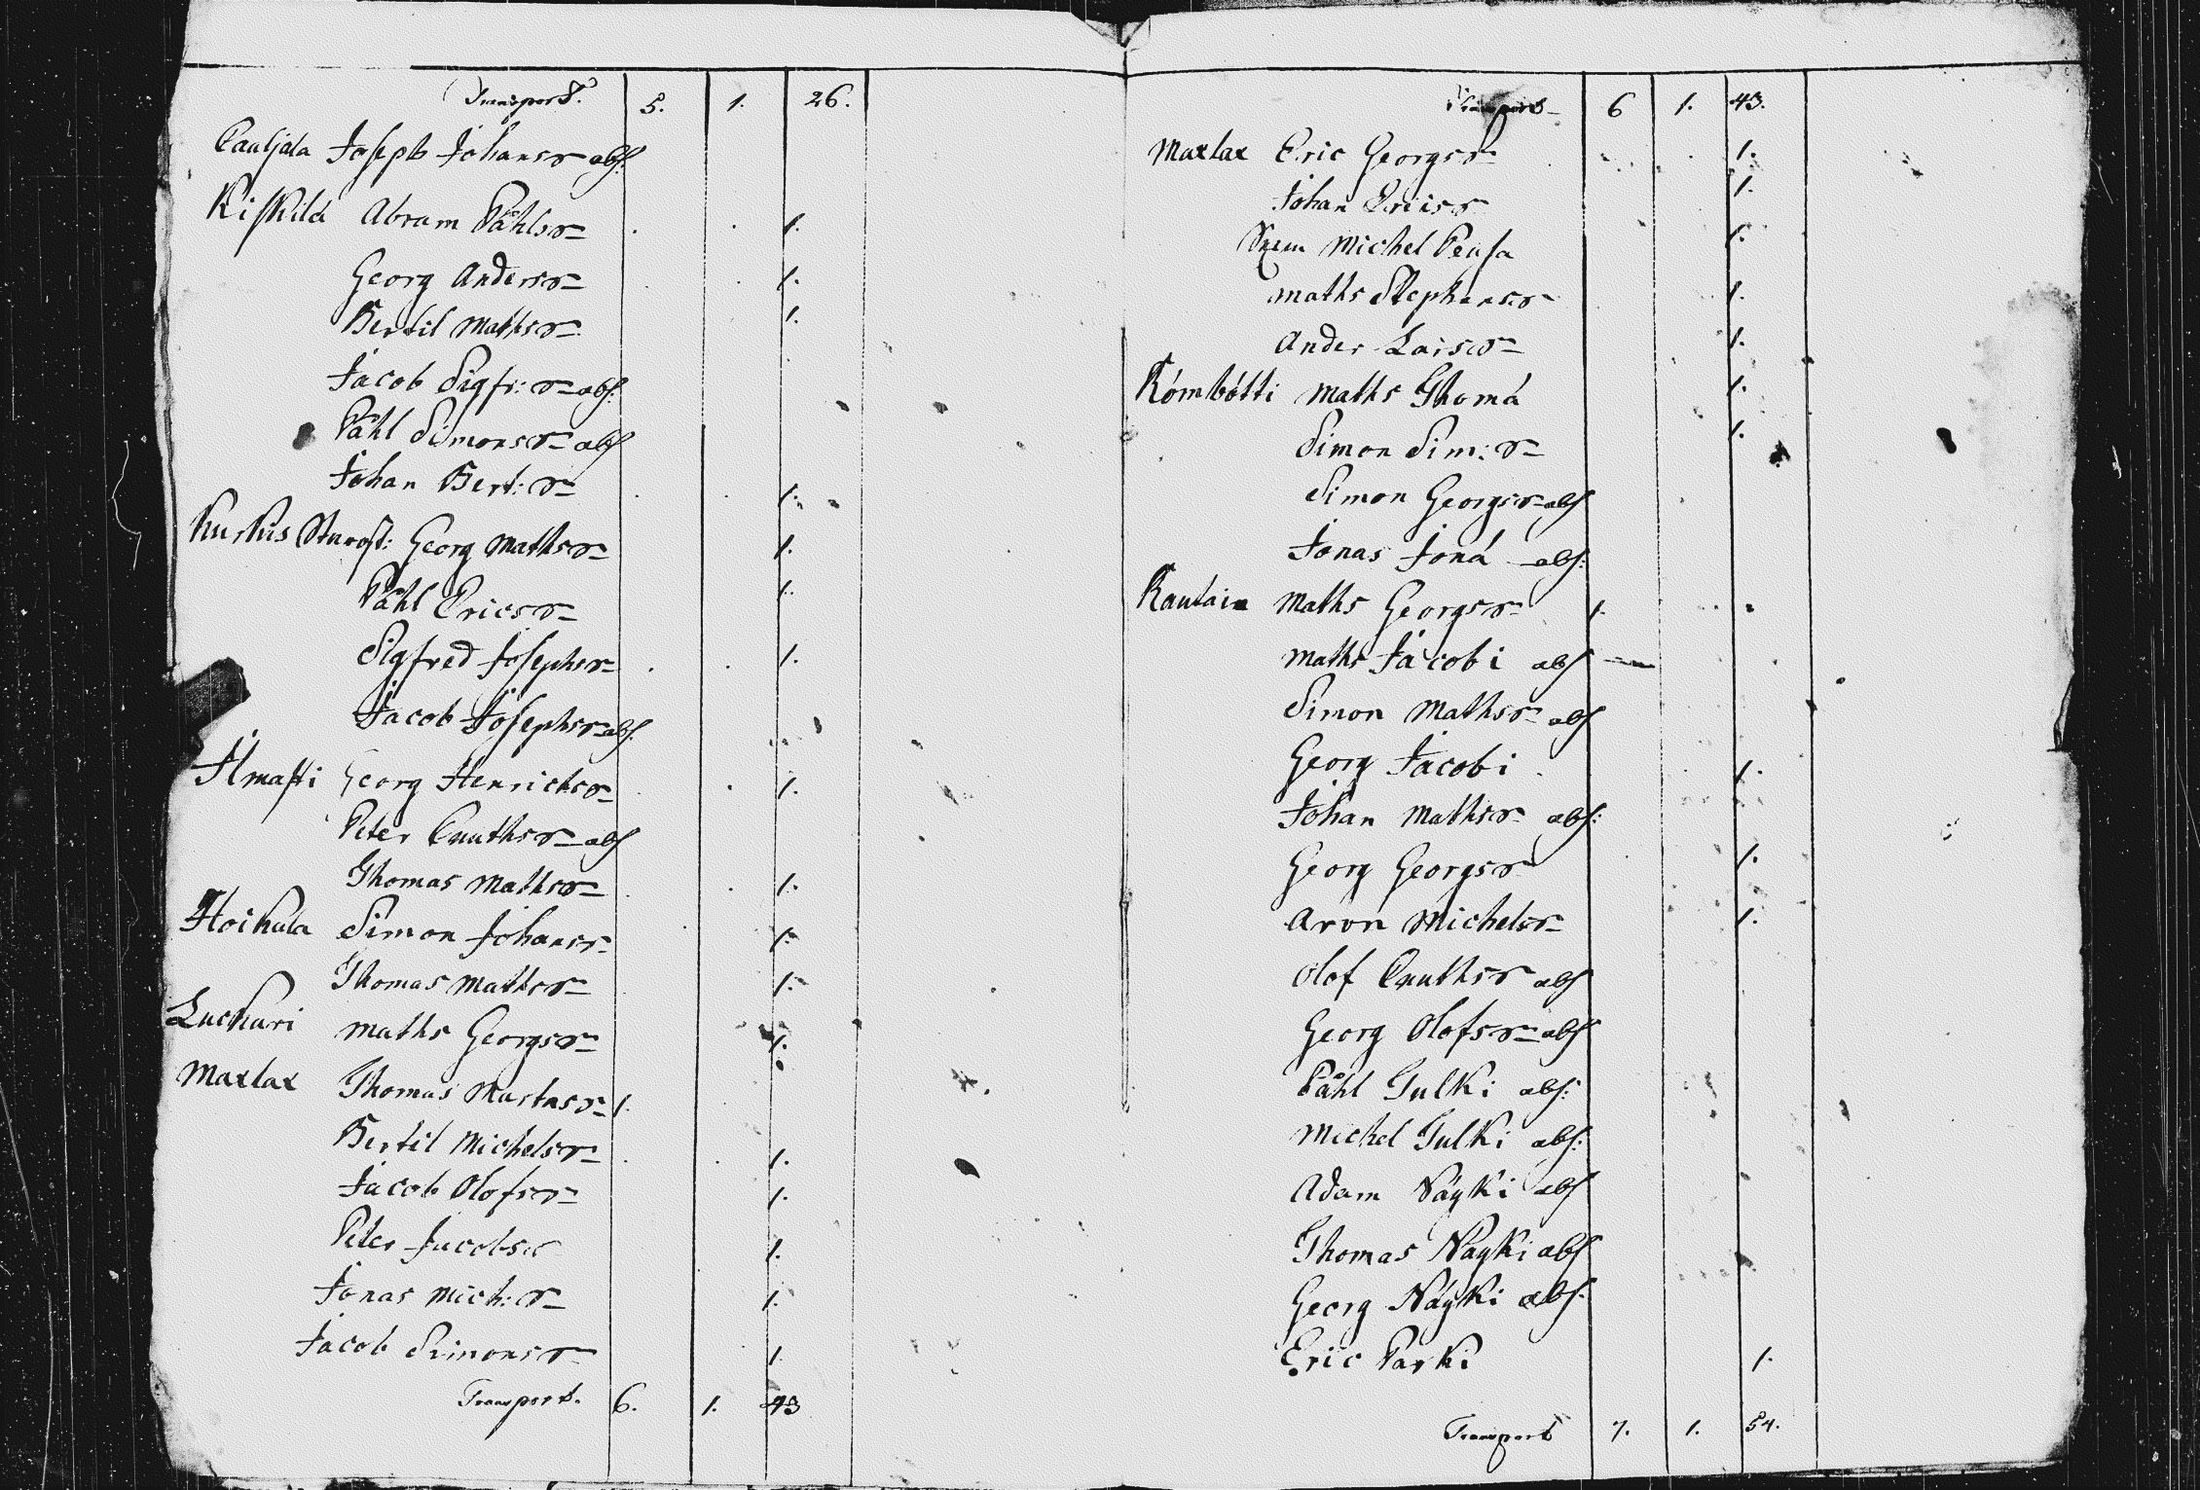 Transport. 5. 1. 26.
Cauljala Joseph Johanss-r abs:
Kiskilä Abram Påhlss-r 1.
Georg Anderss-r 1.
Bertil Mathss-r 1.
Jacob Sigfr: s-r abs:
Påhl Simonss-r abs
Johan Bert: s-r 1.
Kurkis Starost: Georg Mathss-r 1.
Påhl Ericss-r 1.
Sigfred Josephss-r 1.
Jacob Josephss-r abs.
Ilmasti Georg Henrichss-r 1.
Peter Cnuthss-r abs
Thomas Mathss-r 1.
Hoikala Simon Johanss-r 1.
Thomas Mathss-r 1.
Luckari Maths Georgss-r 1.
Maxlax Thomas 1.
Bertil Michelss-r 1.
Jacob Olofss-r 1.
Peter Jacobss-r 1.
Jonas Mich: s-r 1.
Jacob Simonss-r 1
Transport. 6. 1. 43
Transport 6 1. 43.
Maxlax Eric Georgss-r 1.
Johan Ericss-r 1.
Michel Peusa 1.
Maths Stephanss-r 1.
Ander Larss-r 1.
Römbötti Maths Thomä 1.
Simon Sim: s-r 1.
Simon Georgss-r abs
Jonas Jonä abs:
Rautain Maths Georgss-r 1.
Maths Jacobi abs —
Simon Mathss-r abs
Georg Jacobi 1.
Johan Mathss-r abs:
Georg Georgss-r 1.
Aron Michelss-r 1.
Olof Cnuthss-r abs
Georg Olofss-r abs
Påhl Tulki abs:
Michel Tulki abs:
Adam Näyki abs
Thomas Näyki abs
Georg Näyki abs:
Eric Parki 1.
Transport 7. 1. 54.